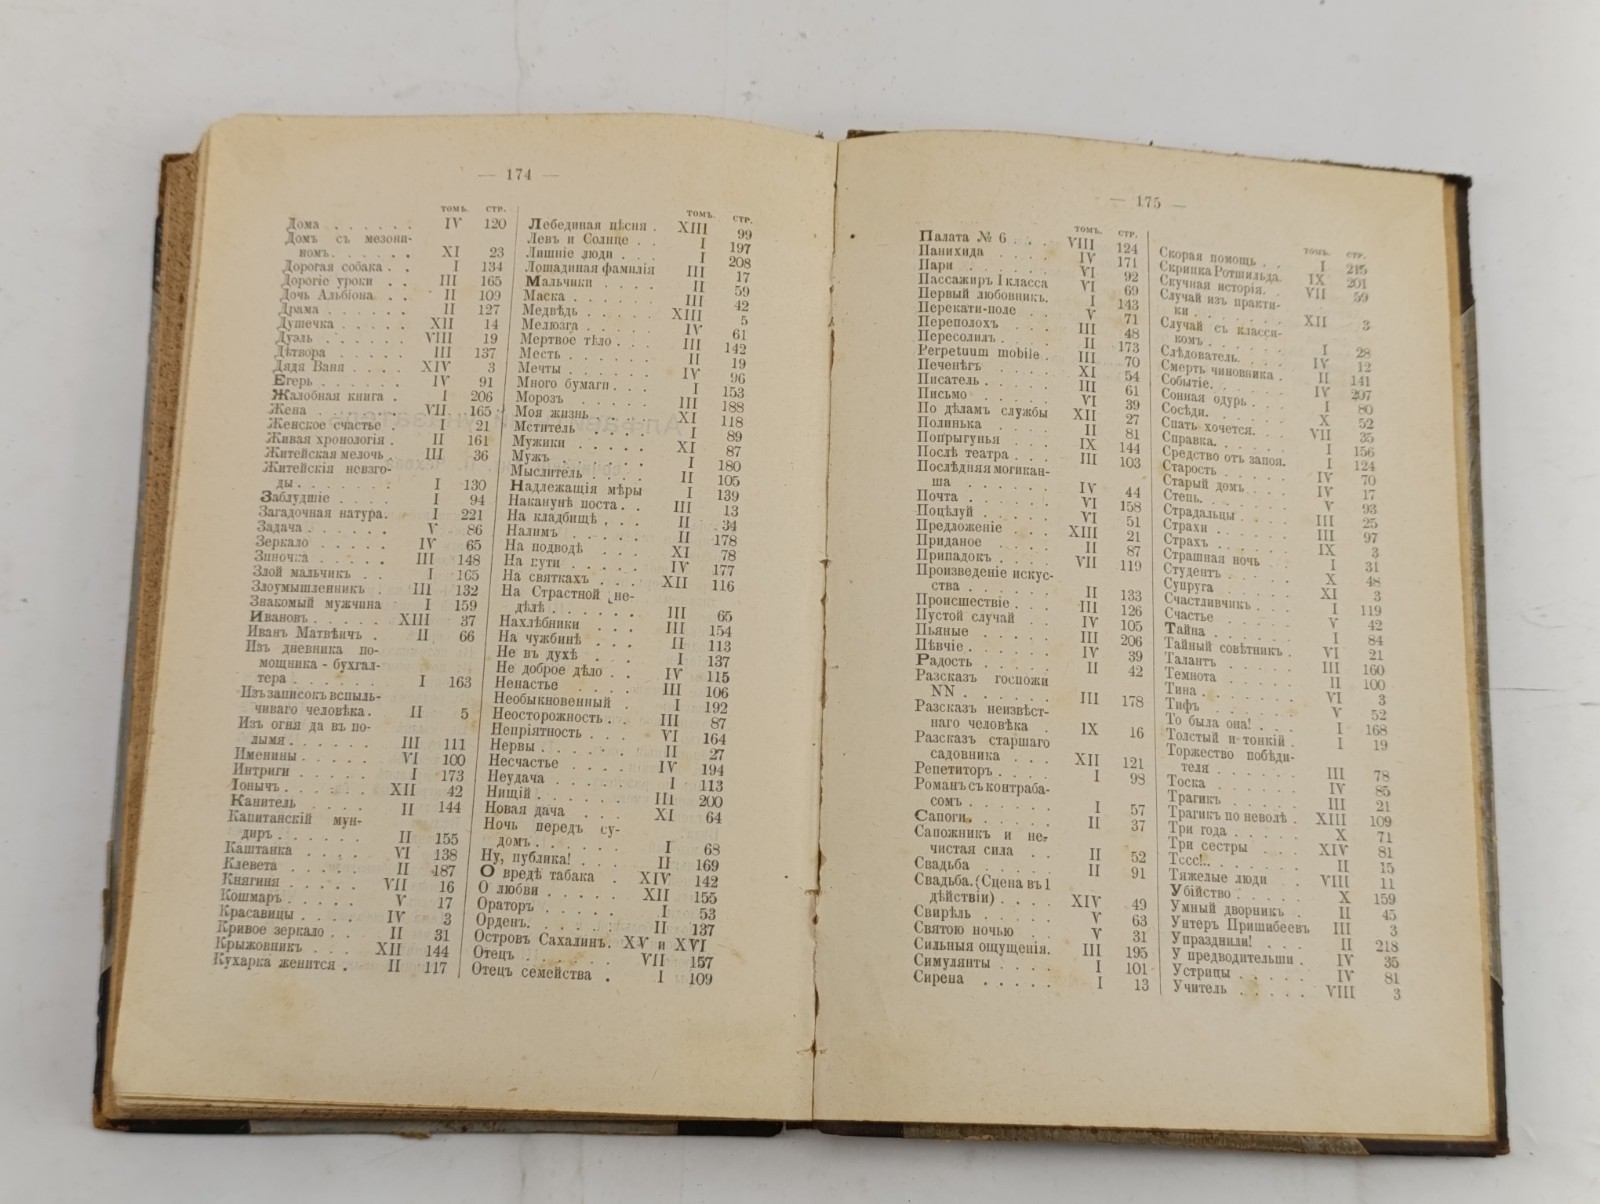 — 174 —
томъ. стр.
Дома . . . . . . . IV 120
Домъ съ мезони-
номъ. . . . . . XI 23
Дорогая собака . . I 134
Дорогіе уроки . . III 165
Дочь Альбіона. . . II 109
Драма . . . . . . II 127
Душечка . . . . . XII 14
Дуэль . . . . . . VIII 19
Дѣтвора . . . . . III 137
Дядя Ваня . . . . XIV 3
Егерь . . . . . . IV 91
Жалобная книга . I 206
Жена . . . . . . VII 165
Женское счастье . I 21
Живая хронологія . II 161
Житейская мелочь . III 36
Житейскія невзго-
ды . . . . . . . I 130
Заблудшіе . . . . I 94
Загадочная натура. I 221
Задача . . . . . . V 86
Зеркало . . . . . IV 65
Зиночка . . . . . III 148
Злой мальчикъ . . I 165
Злоумышленникъ . III 132
Знакомый мужчина I 159
Ивановъ . . . . . XIII 37
Иванъ Матвѣичъ . II 66
Изъ дневника по-
мощника - бухгал-
тера . . . . . . I 163
Изъ записокъ вспыль-
чиваго человѣка. II 5
Изъ огня да въ по-
лымя . . . . . . III 111
Именины . . . . . VI 100
Интриги . . . . . I 173
Іонычъ . . . . . . XII 42
Канитель . . . . II 144
Капитанскій мун-
диръ . . . . . . II 155
Каштанка . . . . VI 138
Клевета . . . . . II 187
Княгиня . . . . . VII 16
Кошмаръ . . . . . V 17
Красавицы . . . . IV 3
Кривое зеркало . . II 31
Крыжовникъ . . . XII 144
Кухарка женится . II 117
томъ. стр.
Лебединая пѣсня . XIII 99
Левъ и Солнце . . I 197
Лишніе люди . . . I 208
Лошадиная фамилія III 17
Мальчики . . . . II 59
Маска . . . . . . III 42
Медвѣдь . . . . . XIII 5
Мелюзга . . . . . IV 61
Мертвое тѣло . . . III 142
Месть . . . . . . II 19
Мечты . . . . . . IV 96
Много бумаги . . . I 153
Морозъ . . . . . III 188
Моя жизнь . . . . XI 118
Мститель . . . . I 89
Мужики . . . . . XI 87
Мужъ . . . . . . I 180
Мыслитель . . . . II 105
Надлежащія мѣры I 139
Наканунѣ поста . . III 13
На кладбищѣ . . . II 34
Налимъ . . . . . II 178
На подводѣ . . . XI 78
На пути . . . . . IV 177
На святкахъ . . . XII 116
На Страстной не-
дѣлѣ . . . . . . III 65
Нахлѣбники . . . III 154
На чужбинѣ . . . II 113
Не въ духѣ . . . I 137
Не доброе дѣло . . IV 115
Ненастье . . . . III 106
Необыкновенный . I 192
Неосторожность . . III 87
Непріятность . . . VI 164
Нервы . . . . . . II 27
Несчастье . . . . IV 194
Неудача . . . . . I 113
Нищій . . . . . . III 200
Новая дача . . . XI 64
Ночь передъ су-
домъ . . . . . . I 68
Ну, публика! . . . II 169
О вредѣ табака . XIV 142
О любви . . . . . XII 155
Ораторъ . . . . . I 53
Орденъ. . . . . . II 137
Островъ Сахалинъ. XV и XVI
Отецъ . . . . . . VII 157
Отецъ семейства . I 109
— 175 —
томъ. стр.
Палата № 6 . . . VIII 124
Панихида . . . . IV 171
Пари . . . . . . VI 92
Пассажиръ I класса VI 69
Первый любовникъ. I 143
Перекати-поле . . V 71
Переполохъ . . . III 48
Пересолилъ . . . II 173
Perpetuum mobile . III 70
Печенѣгъ . . . . XI 54
Писатель . . . . . III 61
Письмо . . . . . VI 39
По дѣламъ службы XII 27
Полинька . . . . II 81
Попрыгунья . . . IX 144
Послѣ театра . . . III 103
Послѣдняя могикан-
ша . . . . . . . IV 44
Почта . . . . . . VI 158
Поцѣлуй . . . . . VI 51
Предложеніе . . . XIII 21
Приданое . . . . II 87
Припадокъ . . . . VII 119
Произведеніе искус-
ства . . . . . . II 133
Происшествіе . . . III 126
Пустой случай . . IV 105
Пьяные . . . . . III 206
Пѣвчіе . . . . . . IV 39
Радость . . . . . II 42
Разсказъ госпожи
NN . . . . . . . III 178
Разсказъ неизвѣст-
наго человѣка . IX 16
Разсказъ старшаго
садовника . . . XII 121
Репетиторъ . . . . I 98
Романъ съ контраба-
сомъ . . . . . . I 57
Сапоги. . . . . . II 37
Сапожникъ и не-
чистая сила . . II 52
Свадьба . . . . . II 91
Свадьба. (Сцена въ 1
дѣйствіи) . . . . XIV 49
Свирѣль . . . . . V 63
Святою ночью . . V 31
Сильныя ощущенія. III 195
Симулянты . . . . I 101
Сирена . . . . . I 13
томъ. стр.
Скорая помощь . . I 215
Скрипка Ротшильда. IX 201
Скучная исторія. . VII 59
Случай изъ практи-
ки . . . . . . . XII 3
Случай съ класси-
комъ . . . . . . I 28
Слѣдователь. . . . IV 12
Смерть чиновника . II 141
Событіе. . . . . . IV 207
Сонная одурь . . . I 80
Сосѣди. . . . . . X 52
Спать хочется. . . VII 35
Справка. . . . . . I 156
Средство отъ запоя. I 124
Старость . . . . . IV 70
Старый домъ. . . . IV 17
Степь. . . . . . . V 93
Страдальцы . . . . III 25
Страхи . . . . . . III 97
Страхъ . . . . . . IX 3
Страшная ночь . . I 31
Студентъ . . . . . X 48
Супруга . . . . . XI 3
Счастливчикъ . . . I 119
Счастье . . . . . V 42
Тайна . . . . . . I 84
Тайный совѣтникъ . VI 21
Талантъ . . . . . III 160
Темнота . . . . . II 100
Тина . . . . . . . VI 3
Тифъ . . . . . . V 52
То была она! . . . I 168
Толстый и тонкій . I 19
Торжество побѣди-
теля . . . . . . III 78
Тоска . . . . . . IV 85
Трагикъ . . . . . III 21
Трагикъ по неволѣ . XIII 109
Три года . . . . . X 71
Три сестры . . . XIV 81
Тссс!.. . . . . . II 15
Тяжелые люди . . VIII 11
Убійство . . . . . X 159
Умный дворникъ . II 45
Унтеръ Пришибеевъ III 3
Упразднили! . . . II 218
У предводительши . IV 35
Устрицы . . . . . IV 81
Учитель . . . . . VIII 3